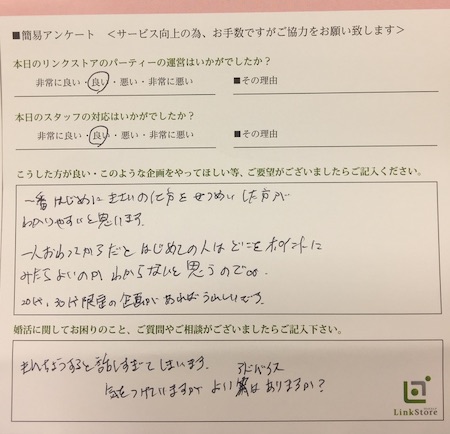 ■簡易アンケート ＜サービス向上の為、お手数ですがご協力をお願い致します＞
本日のリンクストアのパーティーの運営はいかがでしたか？
非常に良い・良い・悪い・非常に悪い ■その理由
本日のスタッフの対応はいかがでしたか？
非常に良い・良い・悪い・非常に悪い ■その理由
こうした方が良い・このような企画をやってほしい等、ご要望がございましたらご記入ください。
一番はじめに の仕方をせつめいした方が
わかりやすいと思います。
一人おわってからだとはじめての人はどこをポイントに
みたらよいのかわからないと思うので。。
20代、30代限定の企画があればうれしいです。
婚活に関してお困りのこと、ご質問やご相談がございましたらご記入下さい。
きんちょうすると話しすぎてしまいます。
気をつけていますがよいアドバイスはありますか？
LinkStore